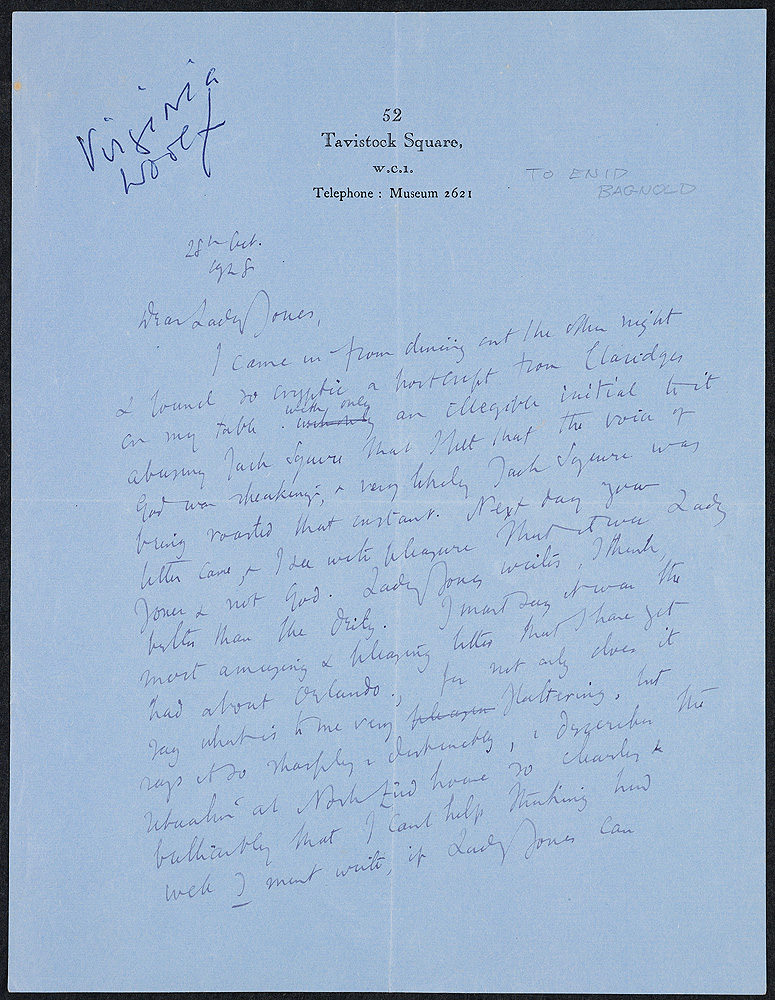 Virginia
Woolf
52
Tavistock Square,
W.C.1.
Telephone : Museum 2621
TO ENID
BAGNOLD
28th Oct.
1928
Dear Lady Jones,
I came in from dining out the other night
& found so cryptic a postcript from Claridges
on my table with only an illegible initial to it
abusing Jack Squire that I felt that the voice of
God was speaking, & very likely Jack Squire was
being roasted that instant. Next day your
letter came, & I see with pleasure that it was Lady
Jones & not God. Lady Jones writes, I think,
better than the Deity. I must say it was the
most amusing & pleasing letter that I have yet
had about Orlando, for not only does it
say what is to me very pleasin flattering, but
says it so sharply & distinctly, & describes the
at North End house so clearly &
brilliantly that I cant help thinking how
well I must write, if Lady Jones can